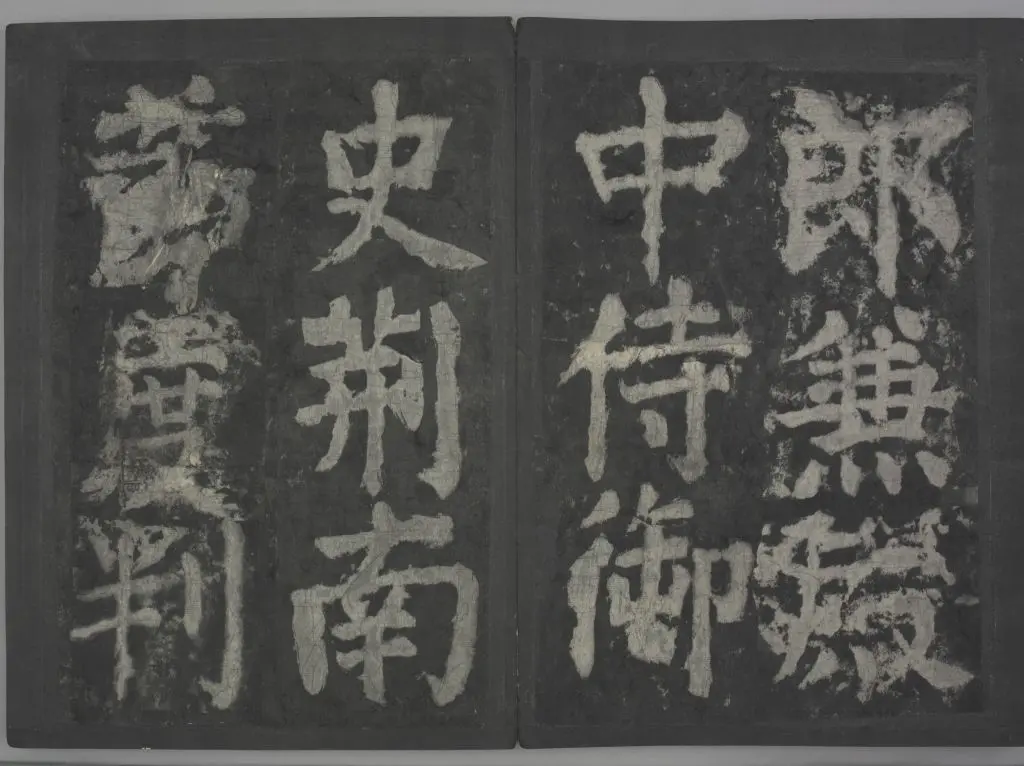 郎兼殿
中侍御
史荆南
節度判